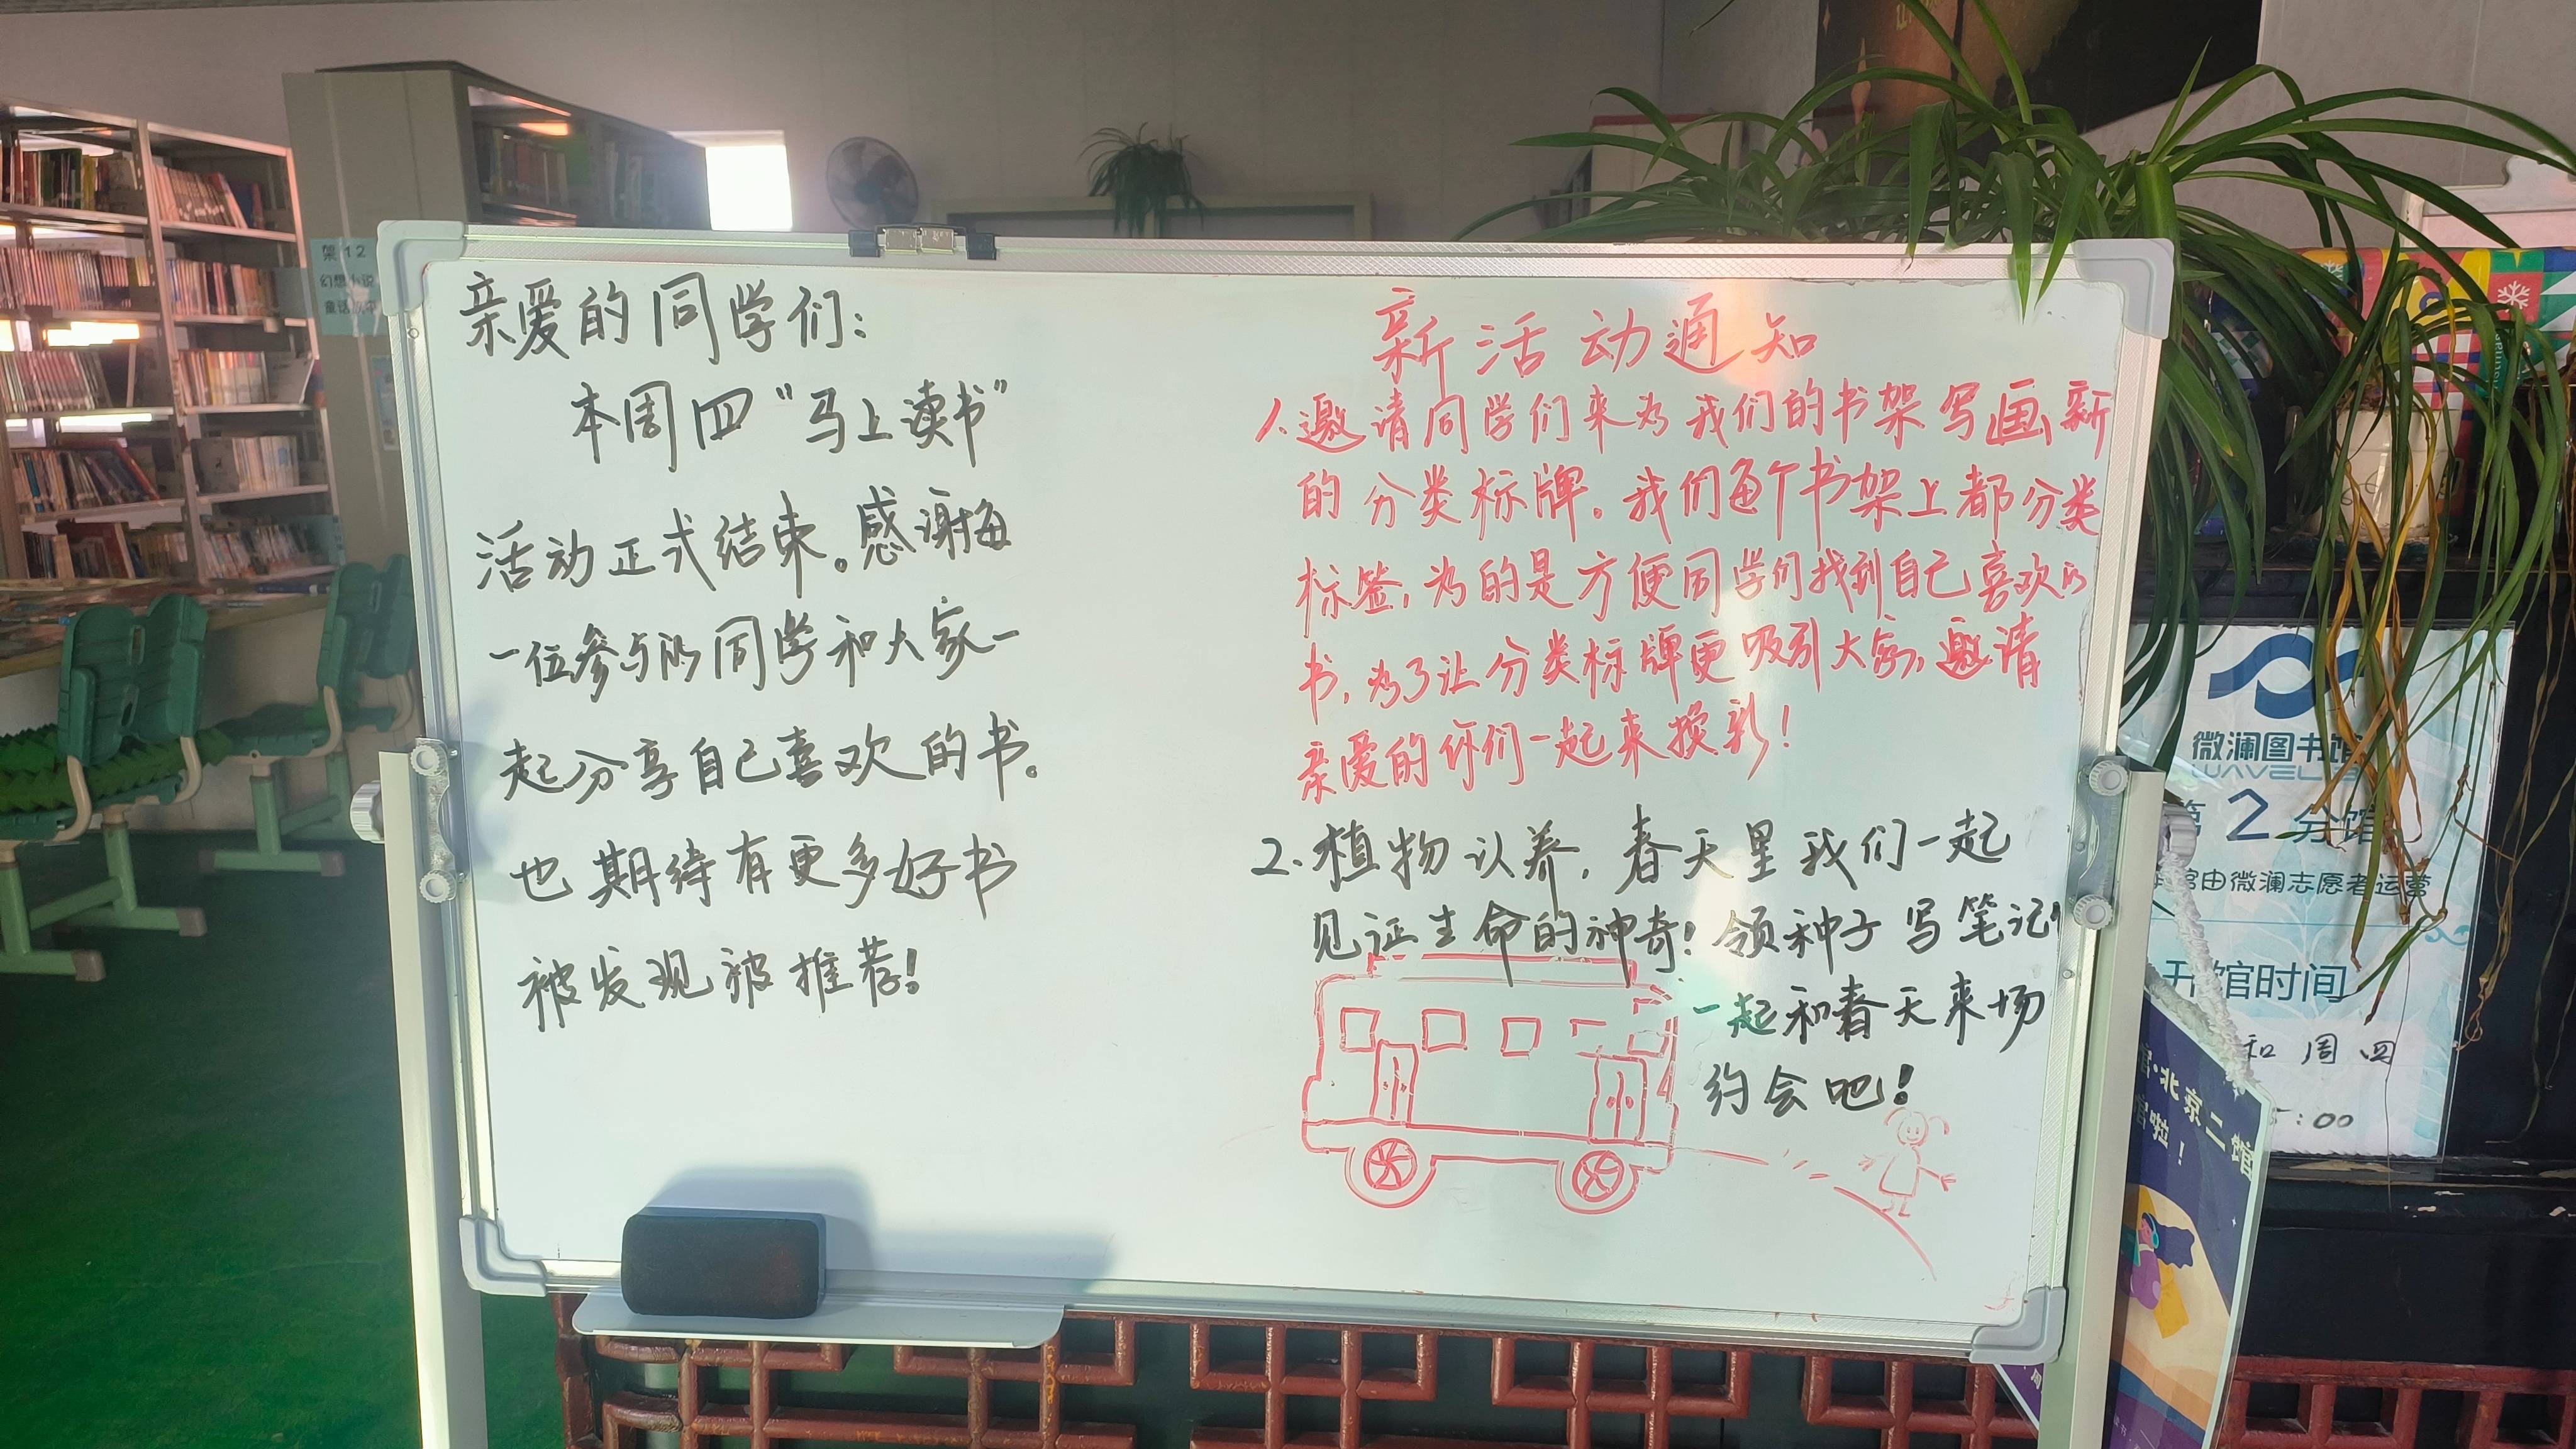 亲爱的同学们：
本周四“马上读书”
活动正式结束。感谢每
一位参与的同学和大家一
起分享自己喜欢的书。
也期待有更多好书
被发现被推荐！
新活动通知
1.邀请同学们来为我们的书架写画新
的分类标牌。我们每个书架上都分类
标签，为的是方便同学们找到自己喜欢的
书，为了让分类标牌更吸引大家，邀请
亲爱的你们一起来换新！
2.植物认养，春天里我们一起
见证生命的神奇！领种子写笔记
一起和春天来场
约会吧！
架12
幻想小说
童话
微澜图书馆
WAVELI
第2分馆
馆由微澜志愿者运营
开馆时间
和周四
5:00
官·北京二馆
官啦！